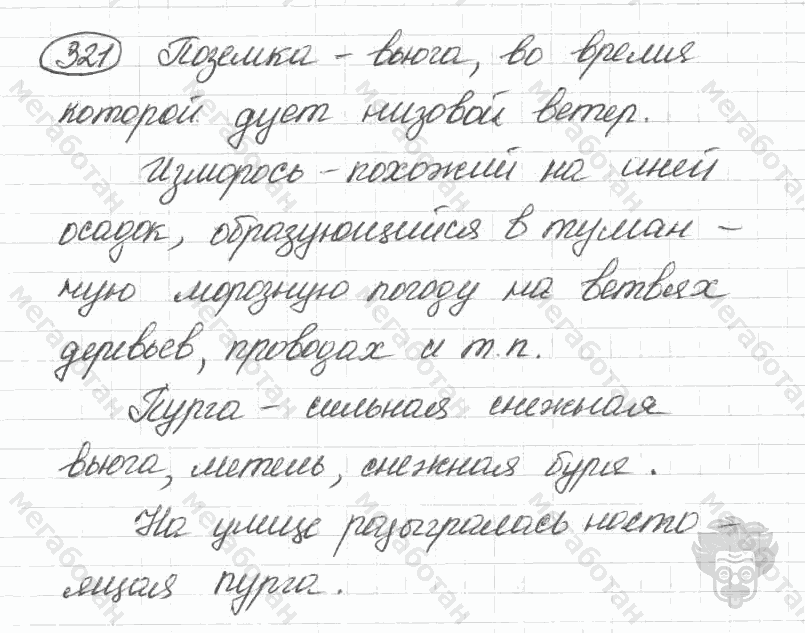 321 Поземка - вьюга, во время
которой дует низовой ветер.
Изморось - похожий на иней
осадок, образующийся в туман -
ную морозную погоду на ветвях
деревьев, проводах и т.п.
Пурга - сильная снежная
вьюга, метель, снежная буря.
На улице разыгралась насто -
ящая пурга.
мегаботан